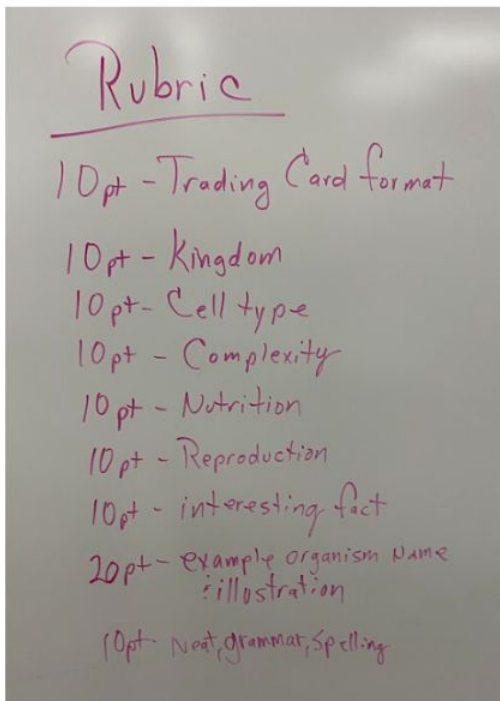 Rubric
10pt - Trading Card format
10pt - Kingdom
10pt - Cell type
10pt - Complexity
10pt - Nutrition
10pt - Reproduction
10pt - interesting fact
20pt - example organism Name
: illustration
10pt - Neat, grammar, Spelling